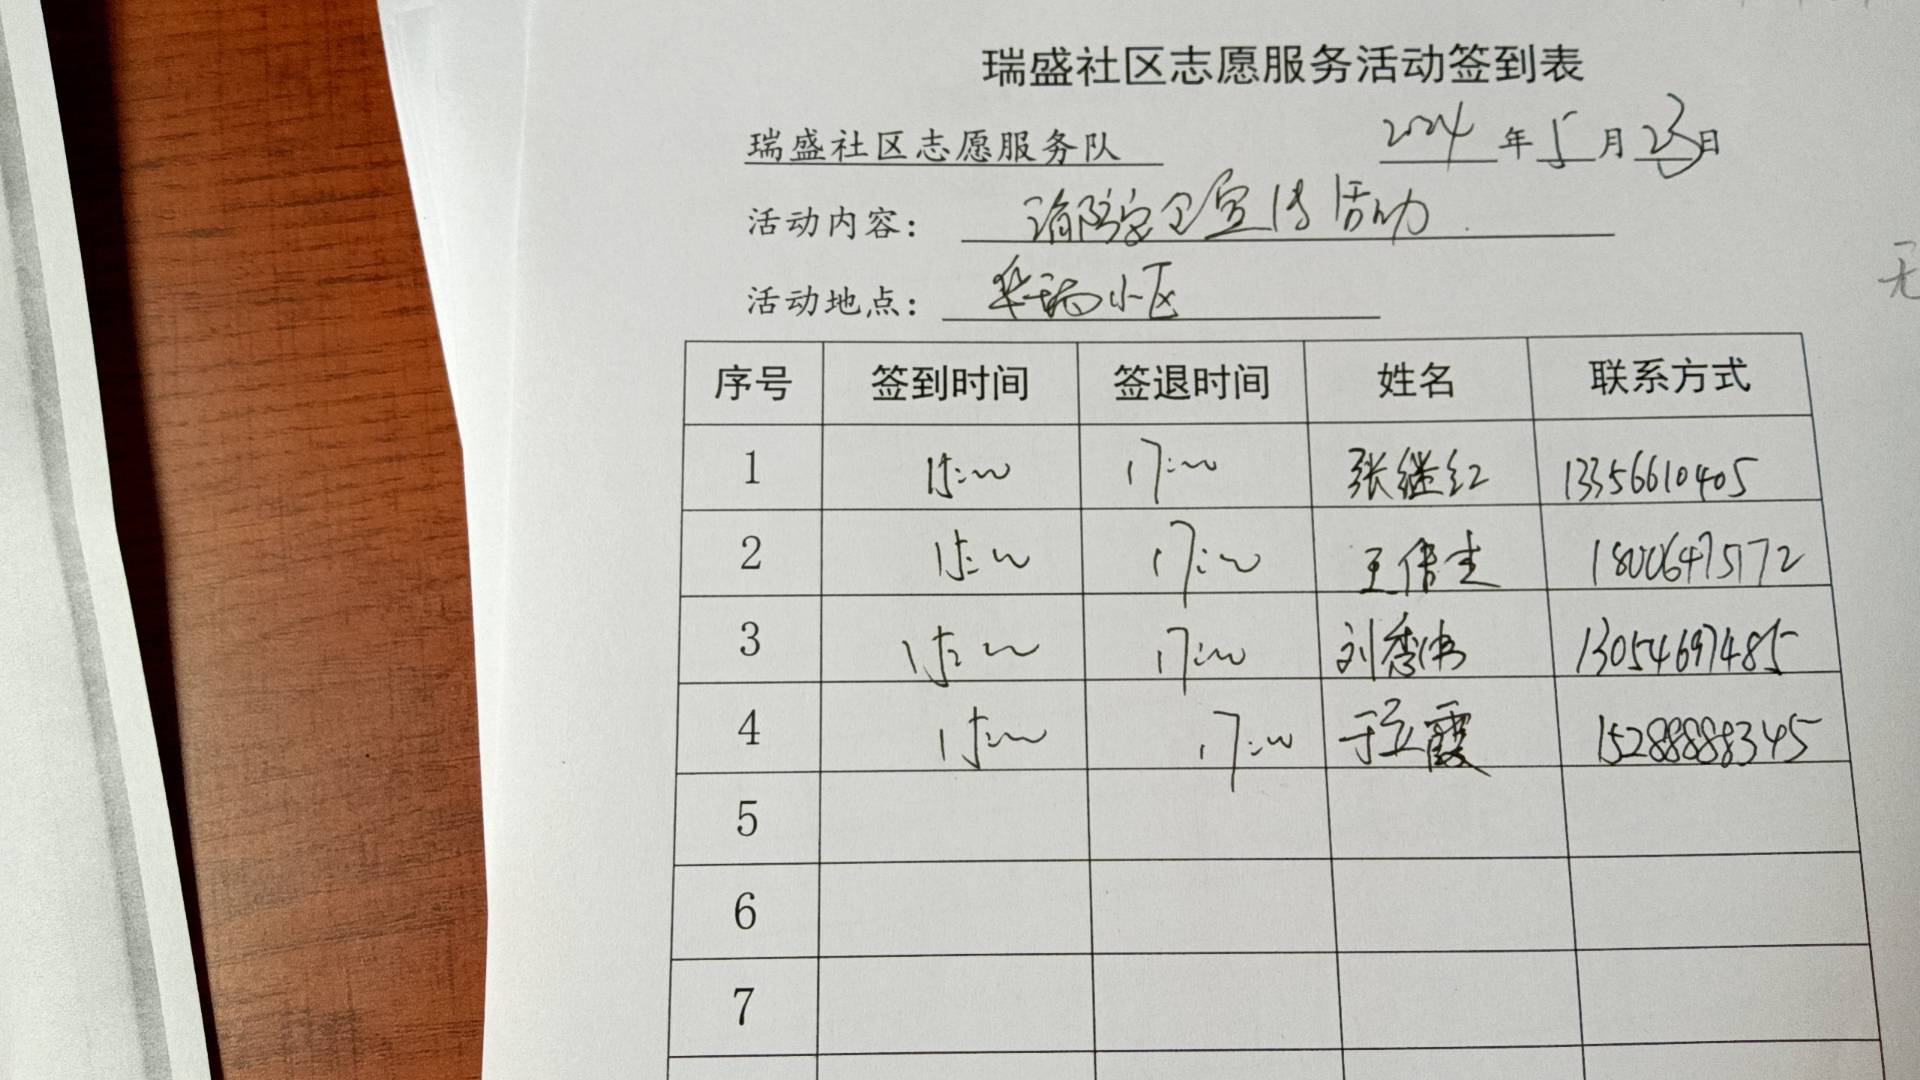 瑞盛社区志愿服务活动签到表
瑞盛社区志愿服务队 2024年5月23日
活动内容： 消防安卫宣传活动
活动地点： 华瑞小区
序号 签到时间 签退时间 姓名 联系方式
1 15:00 17:00 张继红 13356610405
2 15:00 17:00 王伟 18006475172
3 15:00 17:00 刘秀 13054697485
4 15:00 17:00 于立霞 15288888345
5
6
7
无